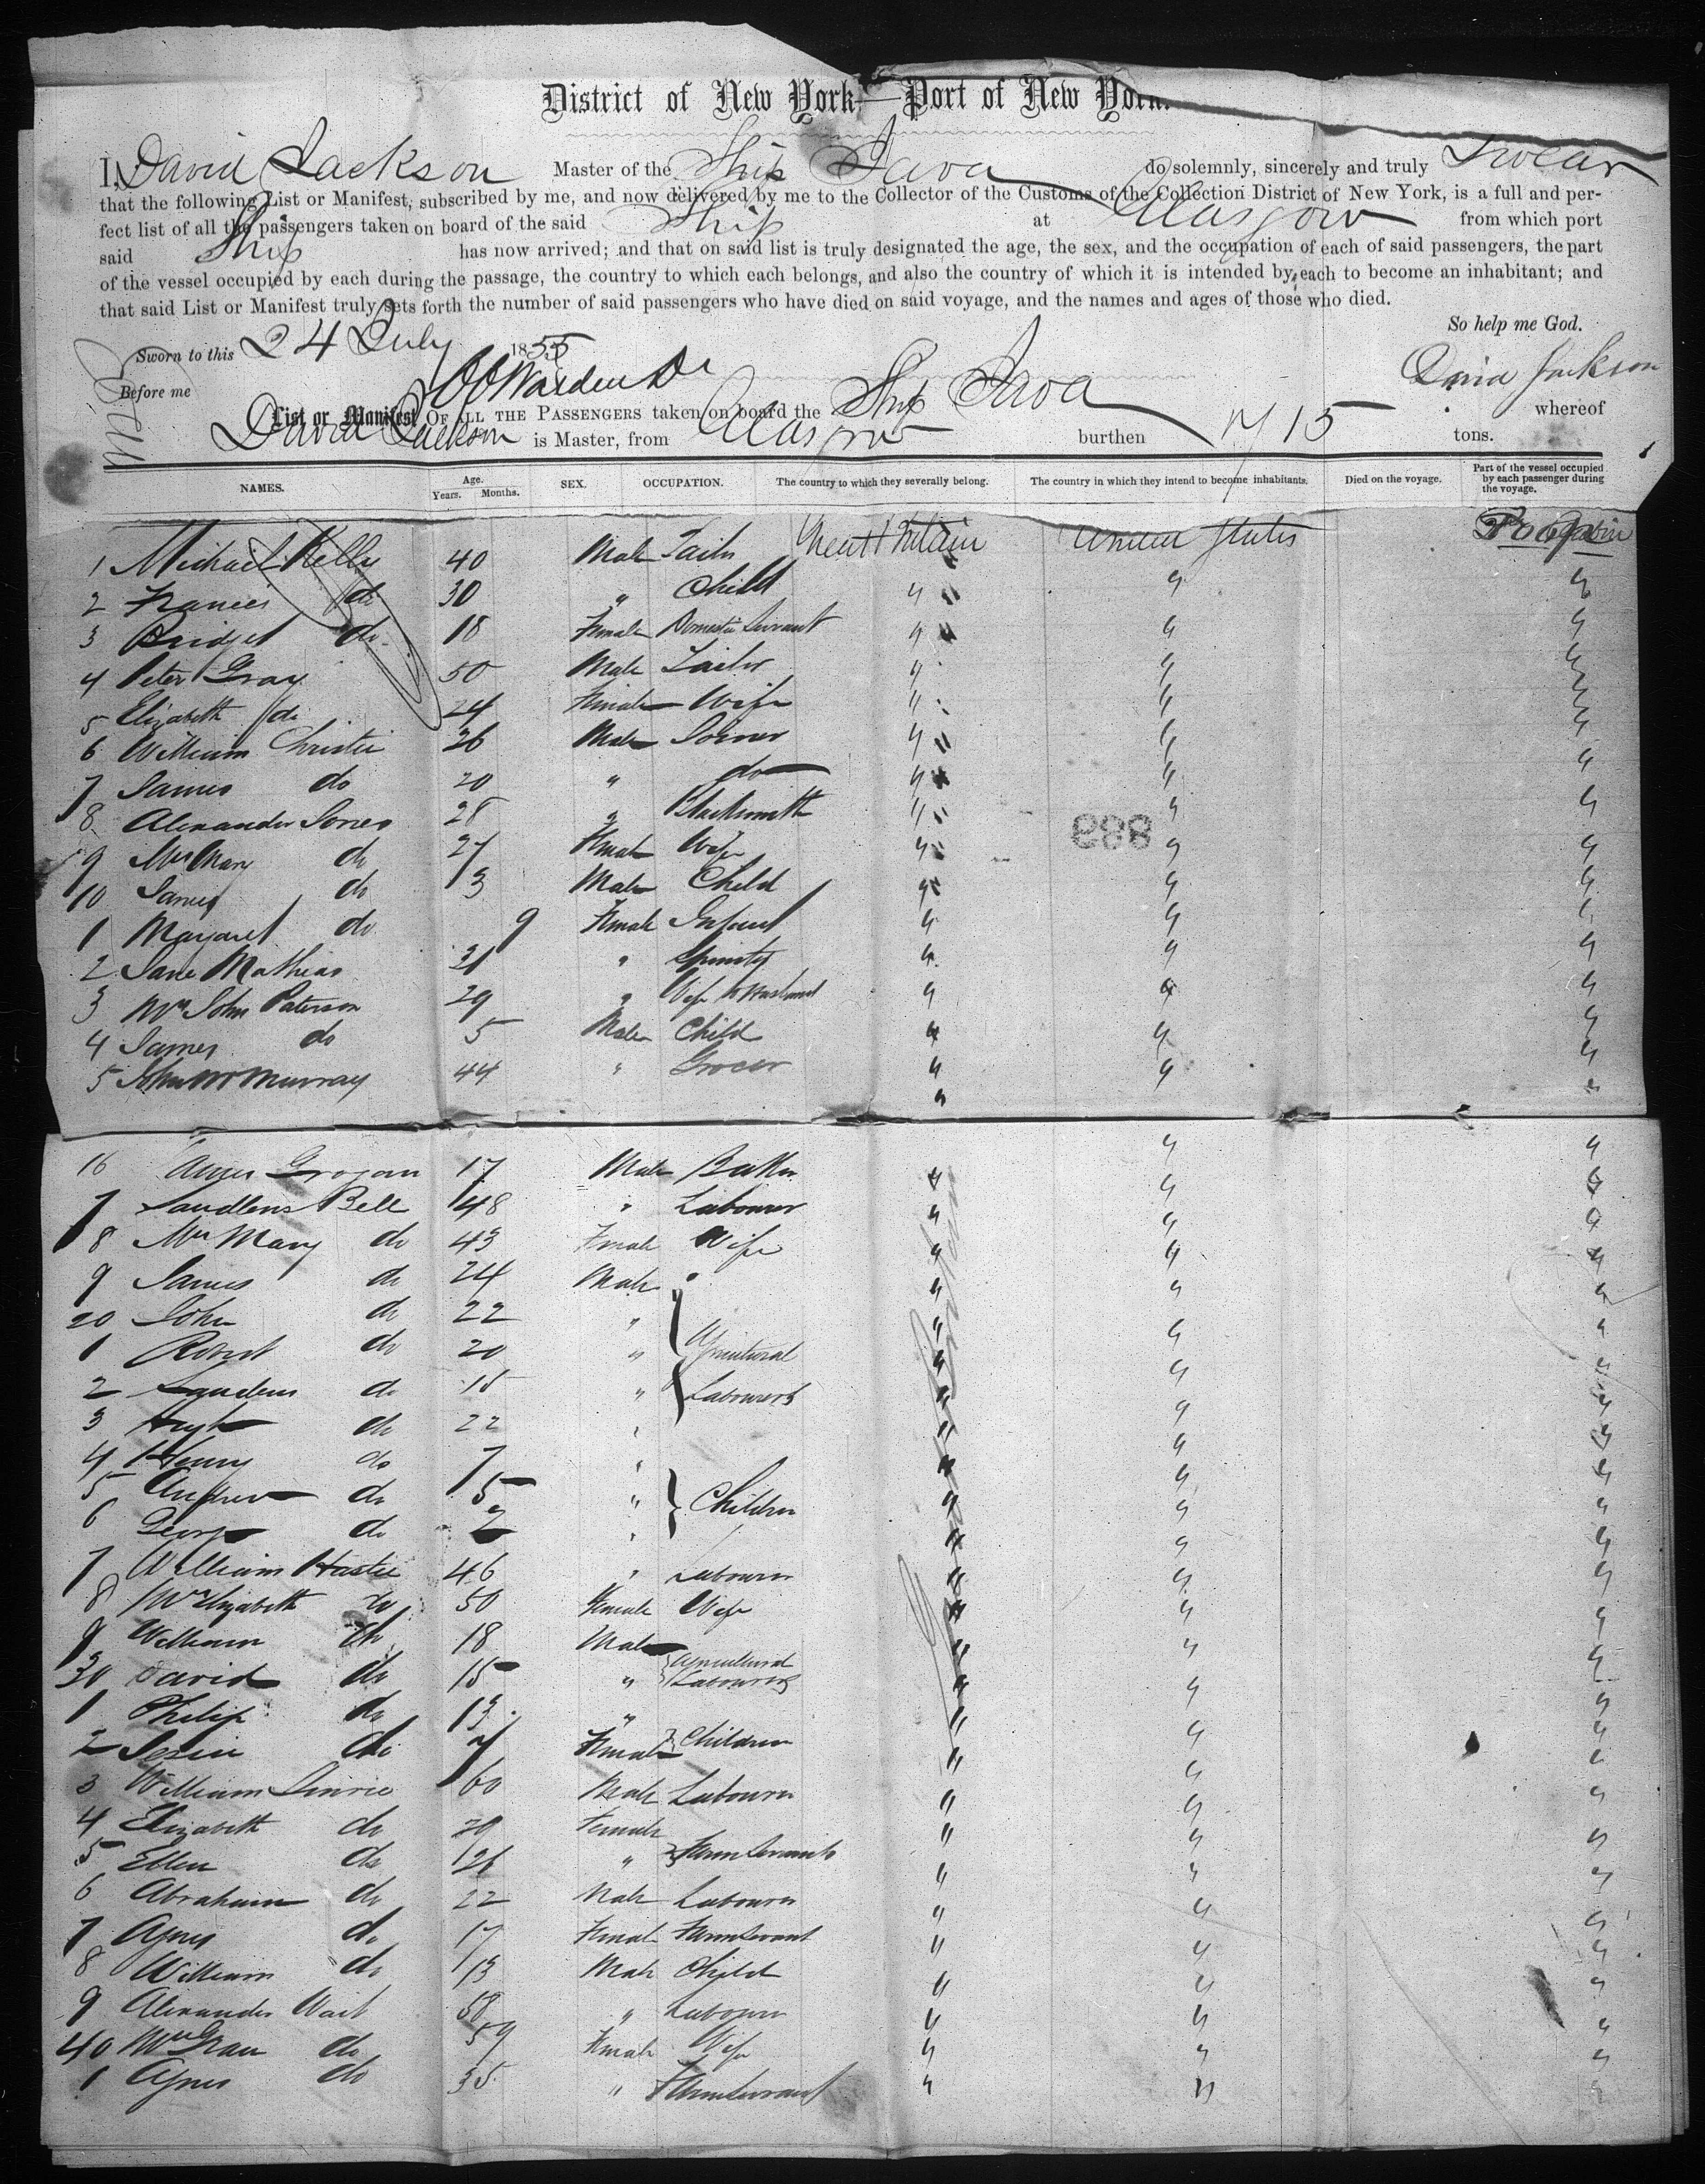 District of New York—Port of New York.
I, David Jackson Master of the Ship Java do solemnly, sincerely and truly Swear
that the following List or Manifest, subscribed by me, and now delivered by me to the Collector of the Customs of the Collection District of New York, is a full and per-
fect list of all the passengers taken on board of the said Ship at Glasgow from which port
said Ship has now arrived; and that on said list is truly designated the age, the sex, and the occupation of each of said passengers, the part
of the vessel occupied by each during the passage, the country to which each belongs, and also the country of which it is intended by each to become an inhabitant; and
that said List or Manifest truly sets forth the number of said passengers who have died on said voyage, and the names and ages of those who died.
So help me God.
Sworn to this 24 July 1855
David Jackson
Before me
List or Manifest OF ALL THE PASSENGERS taken on board the Ship Java whereof
David Jackson is Master, from Glasgow burthen 715 tons.
NAMES. Age. Years. Months. SEX. OCCUPATION. The country to which they severally belong. The country in which they intend to become inhabitants. Died on the voyage. Part of the vessel occupied by each passenger during the voyage.
1 Michael Kelly 40 Male Tailor Great Britain United States
2 Francis do 30 " Child " " "
3 Bridget do 18 Female Domestic Servant " " "
4 Peter Gray 50 Male Tailor " " "
5 Elizabeth do 24 Female Wife " " "
6 William Christie 26 Male Joiner " " "
7 James do 20 " do " " "
8 Alexander Jones 28 " Blacksmith " " "
888
9 Mrs Mary do 27 Female Wife " " "
10 James do 3 Male Child " " "
1 Margaret do 9 Female Infant " " "
2 Jane Mathias 31 " Spinster " " "
3 Mrs John Paterson 29 " Wife to Husband " " "
4 James do 5 Male Child " " "
5 John McMurray 44 " Grocer " " "
16 Grogan 17 Male Baker " " "
7 Bell 48 " Labourer " " "
8 Mrs Mary do 43 Female Wife " " "
9 James do 24 Male " " "
20 John do 22 " " " "
1 Robert do 20 " Agricultural " " "
2 do 15 " Labourers " " "
3 Hugh do 22 " " " "
4 Henry do 7 " " " "
5 Andrew do 5 " Children " " "
6 George do 2 " " " "
7 William Hastie 46 " Labourer " " "
8 Mrs Elizabeth do 50 Female Wife " " "
9 William do 18 Male Agricultural " " "
30 David do 15 " Labourers " " "
1 Philip do 13 " " " "
2 Jessie do 7 Female Children " " "
3 William 60 Male Labourer " " "
4 Elizabeth do 29 Female " " "
5 Ellen do 26 " Farm Servants " " "
6 Abraham do 22 Male Labourer " " "
7 Agnes do 17 Female Farm Servant " " "
8 William do 13 Male Child " " "
9 Alexander Wait 58 " Labourer " " "
40 Mrs Jean do 59 Female Wife " " "
1 Agnes do 35 " Farm Servant " " "